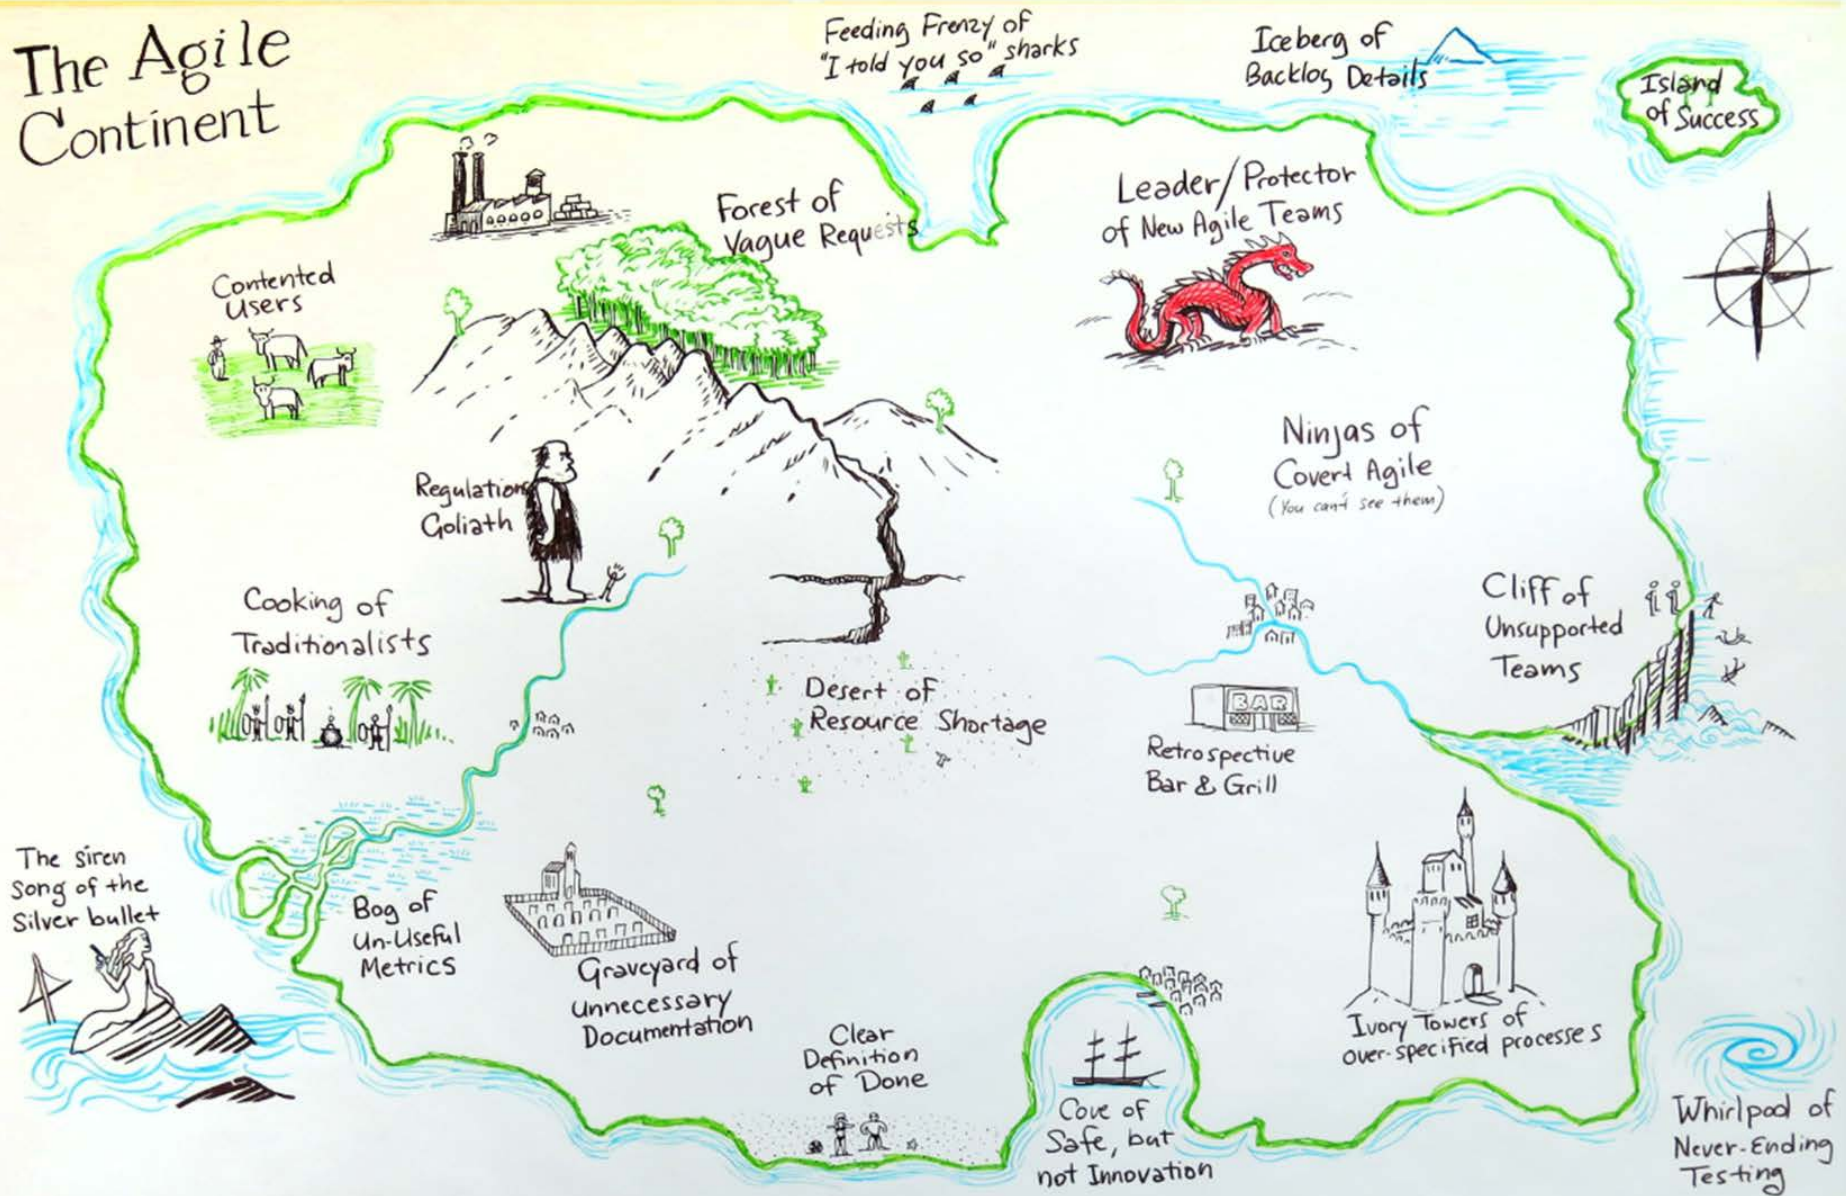 The Agile
Continent
Feeding Frenzy of
"I told you so" sharks
Iceberg of
Backlog Details
Island
of Success
Forest of
Vague Requests
Leader/Protector
of New Agile Teams
Contented
Users
Ninjas of
Covert Agile
(You can't see them)
Regulation
Goliath
Cooking of
Traditionalists
Cliff of
Unsupported
Teams
Desert of
Resource Shortage
BAR
Retrospective
Bar & Grill
The siren
song of the
Silver bullet
Bog of
Un-Useful
Metrics
Graveyard of
unnecessary
Documentation
Clear
Definition
of Done
Cove of
Safe, but
not Innovation
Ivory Towers of
over-specified processes
Whirlpool of
Never-Ending
Testing